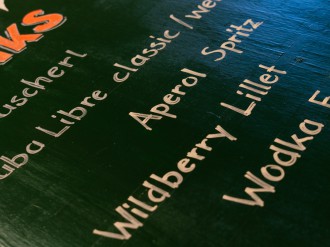 KS
uscherl
uba Libre classic / we
Aperol Spritz
Wildberry Lillet
Wodka E